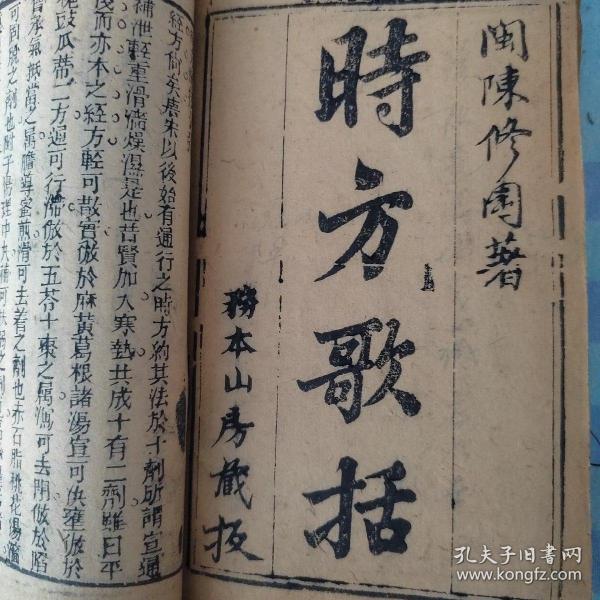 閩陳修園著
時方歌括
務本山房藏板
經方尚矣唐宋以後始有通行之時方約其法於十劑所謂宣通
補泄輕重滑濇燥濕是也昔賢加入寒熱共成十有二劑雖曰平
淺而亦本之經方輕可散實倣於麻黃葛根諸湯宣可決壅倣於
梔豉瓜蒂二方通可行滯倣於五苓十棗之屬瀉可去閉倣於陷
胷承氣抵當之屬膽導蜜煎滑可去著之劑也赤石脂桃花湯濇
可固脫之劑也附子湯理中丸補可扶弱之劑
孔夫子旧书网
www.kongfz.com